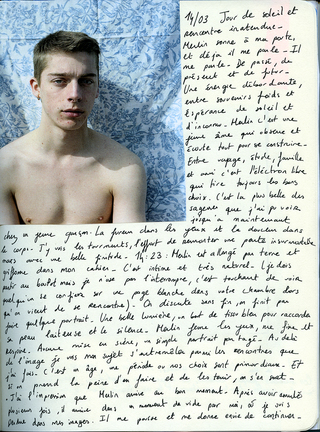 14/03 Jour de soleil et
rencontre inattendue.
Merlin sonne à ma porte,
et déjà il me parle. Il
me parle. De passé, du
présent et de futur.
Une énergie débordante,
entre souvenirs froids et
espérance de soleil et
d'inconnu. Merlin c'est une
jeune âme qui observe et
écoute tout pour se construire.
Entre voyage, étude, famille
et ami c'est l'électron libre
qui tire toujours les bons
choix. C'est la plus belle des
sagesse que j'ai pu voir
jusqu'à maintenant
chez un jeune garçon. La fureur dans les yeux et la douceur dans
le corps. J'y vois les tourments, l'effort de remonter une pente
mais avec une belle 14:23: Merlin est allongé par terre et
dans mon cahier. C'est intime et très naturel. (je dois
au boulot mais je n'ose pas l'interrompre, c'est touchant de voir
quelqu'un se confier sur une page blanche dans votre chambre alors
qu'on vient de se rencontrer). On discute sans fin, on finit par
faire quelque portrait. Une belle lumière, un bout de tissu bleu pour raccorder
sa peau laiteuse et le silence. Merlin ferme les yeux, me fixe et
respire. Aucune mise en scène, un simple portrait partagé. Au delà
de l'image je vois mon sujet parmi les rencontres que
j'ai fais. C'est un âge, une période où nos choix sont primordiaux. Et
si on prend la peine d'en faire et de les tenir, on s'en sort.
J'ai l'impression que Merlin arrive au bon moment. Après avoir
plusieurs fois, il arrive dans un moment de vie par moi, où je
dans mes images. Il me pousse et me donne envie de continuer.